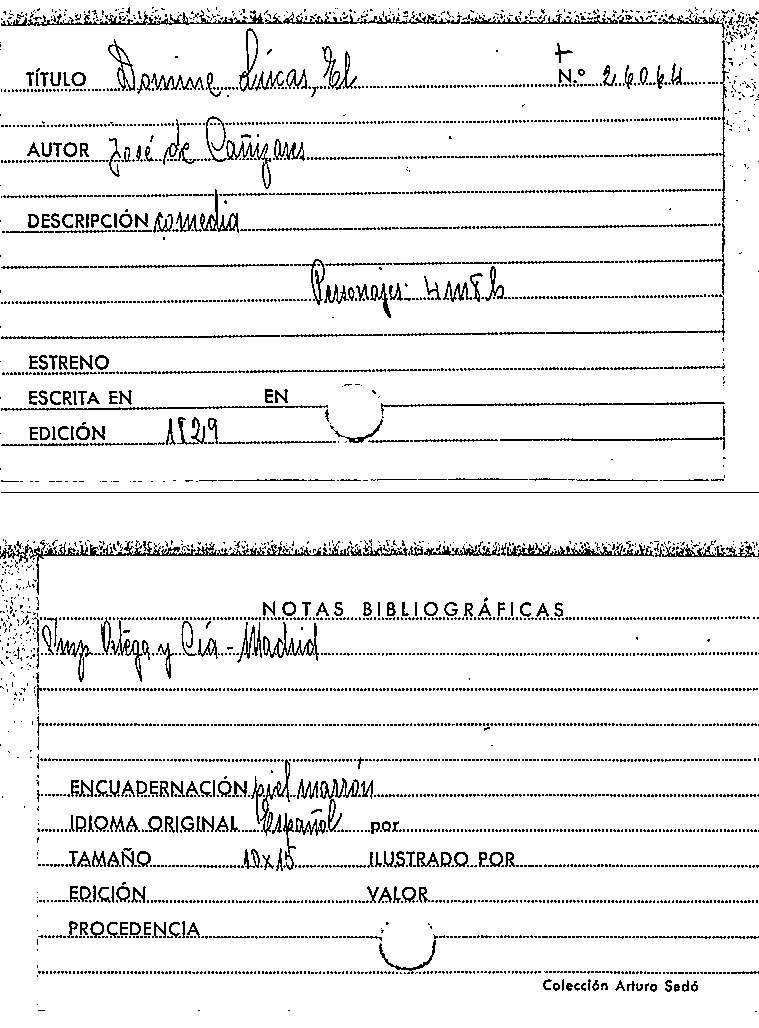 +
TÍTULO Domine Lucas, El N.º 26064
AUTOR José de Cañizares
DESCRIPCIÓN comedia
Personajes:
ESTRENO
ESCRITA EN EN
EDICIÓN 1829
NOTAS BIBLIOGRÁFICAS
Imp Ortega y Cía - Madrid
ENCUADERNACIÓN piel marrón
IDIOMA ORIGINAL Español por
TAMAÑO 10x15 ILUSTRADO POR
EDICIÓN VALOR
PROCEDENCIA
Colección Arturo Sedó